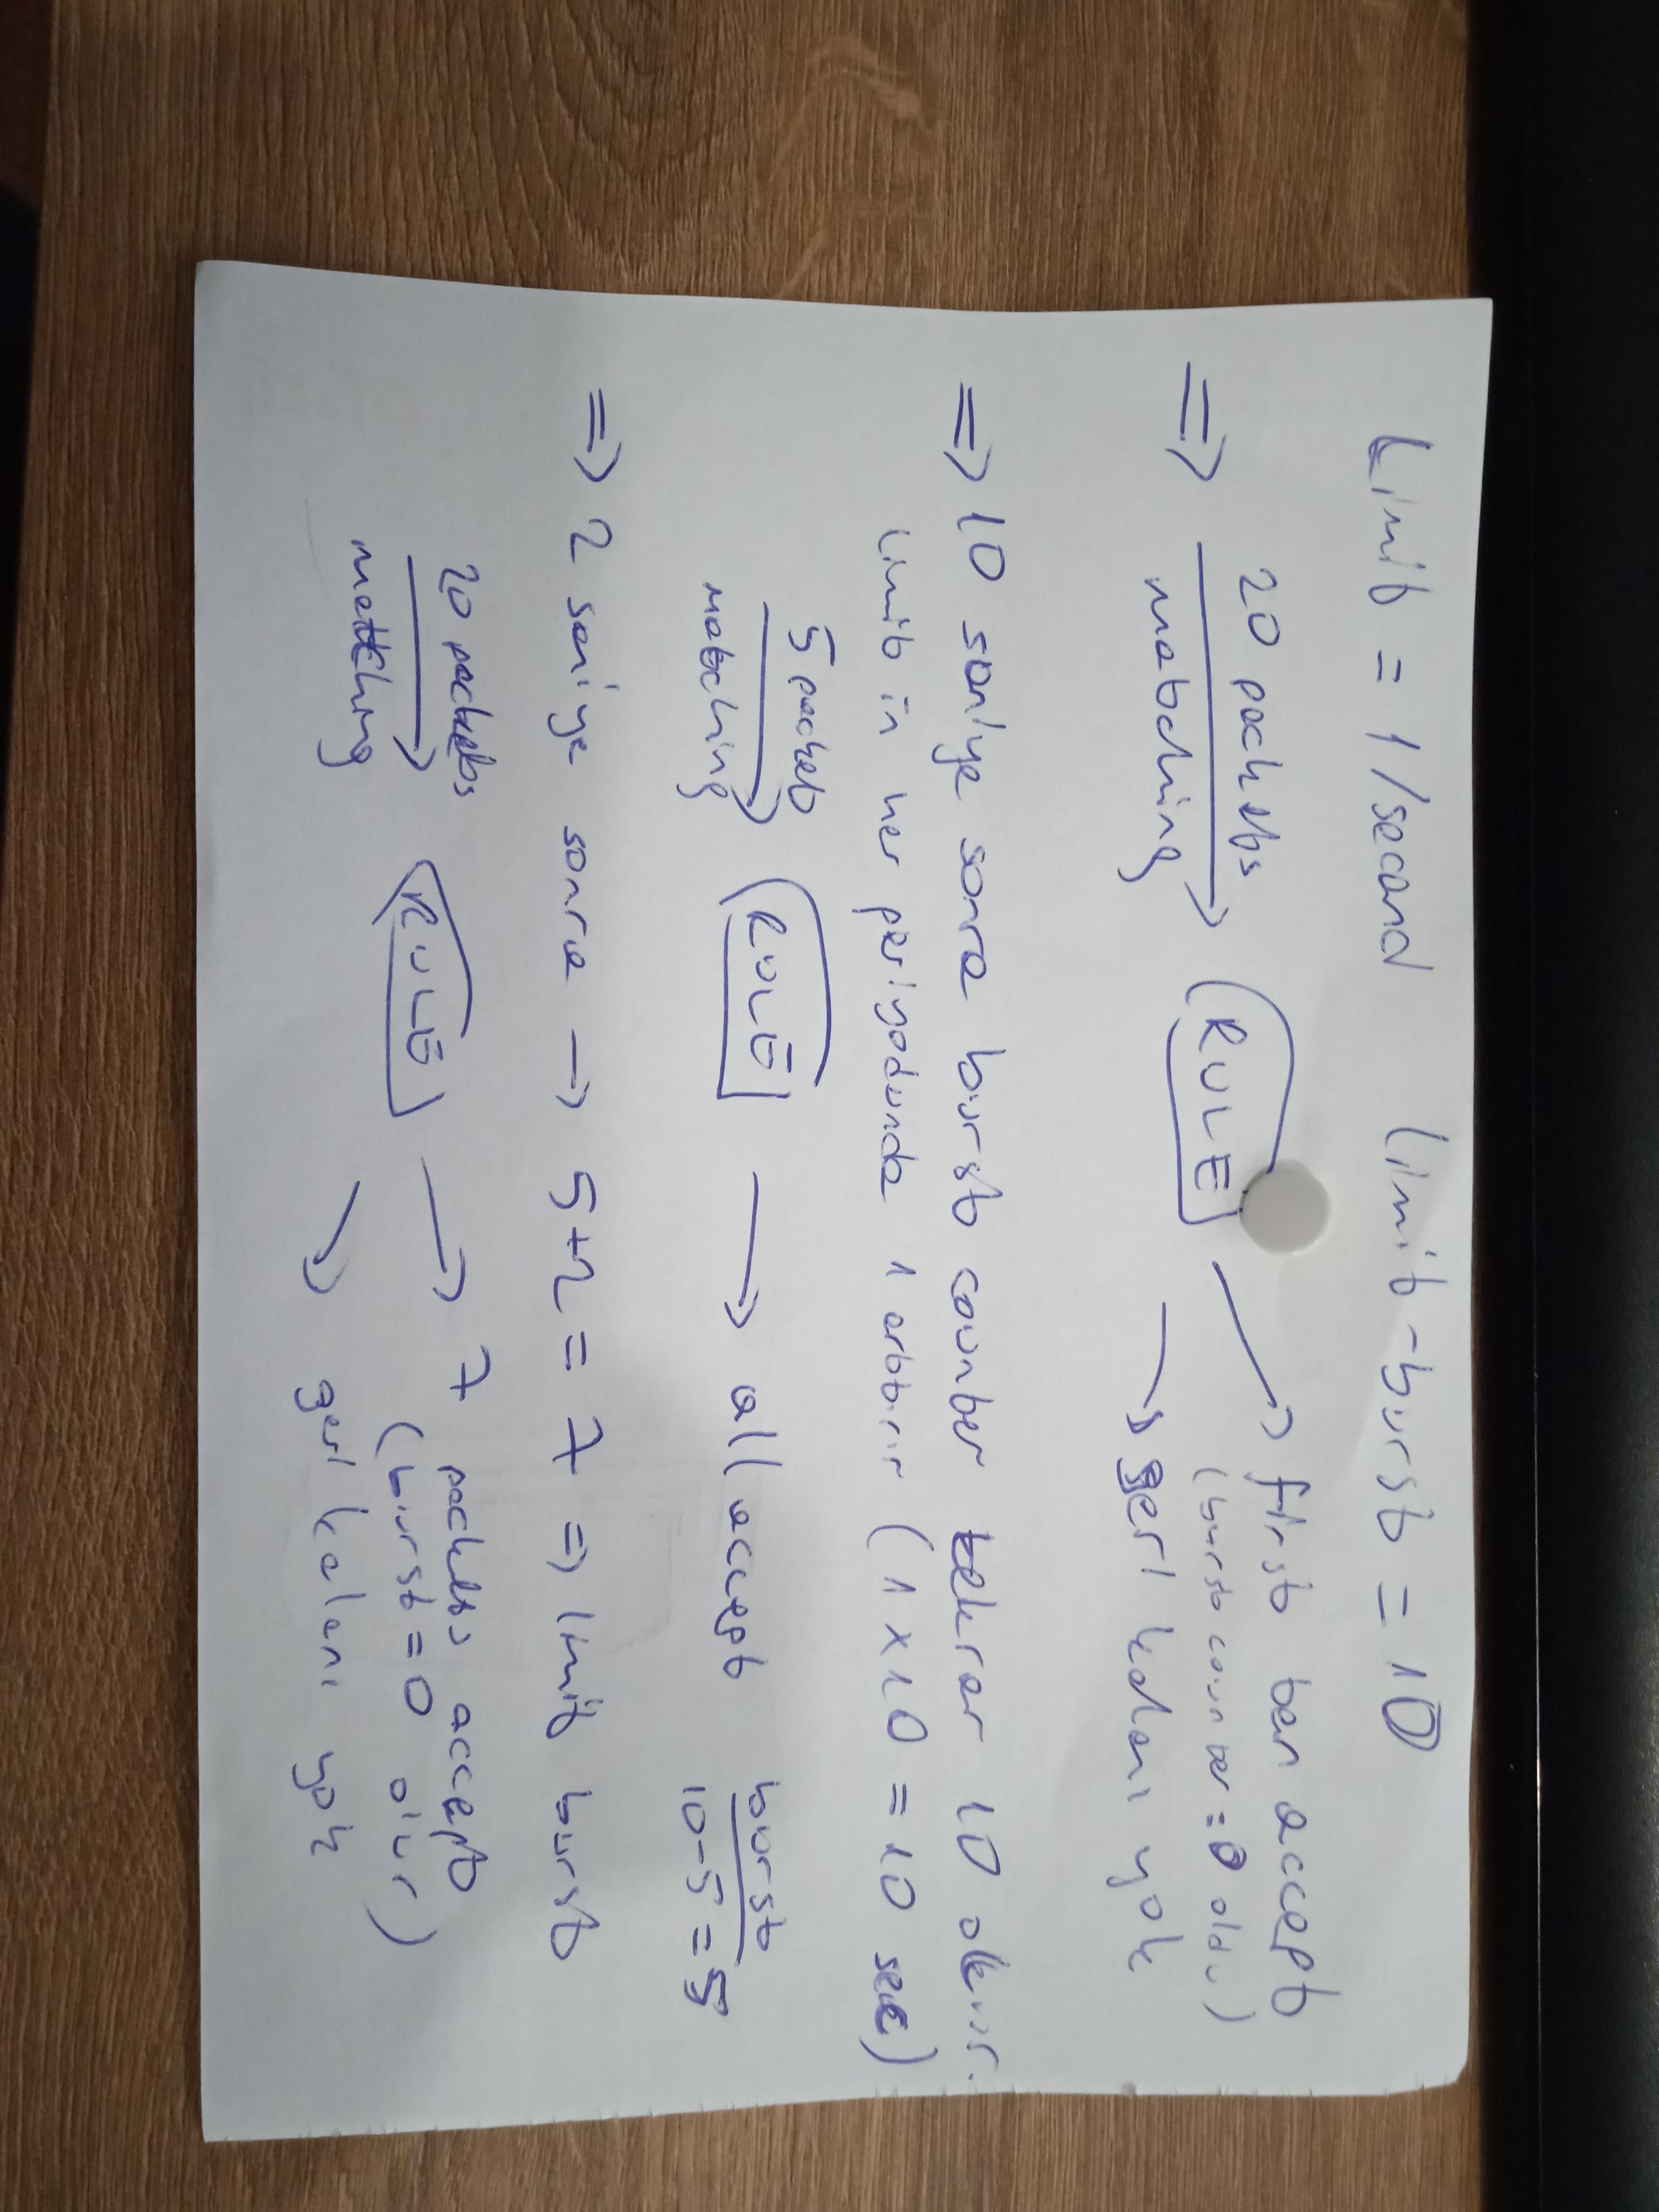 Limit = 1/second limit-burst = 10
20 packets
matching
RULE
first ten accept
(burst counter = 0 oldu)
geri kalanı yok
=> 10 saniye sonra burst counter tekrar 10 olur.
limit in her periyodunda 1 arttırır (1 x 10 = 10 sec)
5 packet
matching
RULE
all accept
burst
10-5 = 5
=> 2 saniye sonra → 5+2 = 7 => limit burst
20 packets
matching
RULE
7 packets accept
(burst = 0 olur)
geri kalanı yok